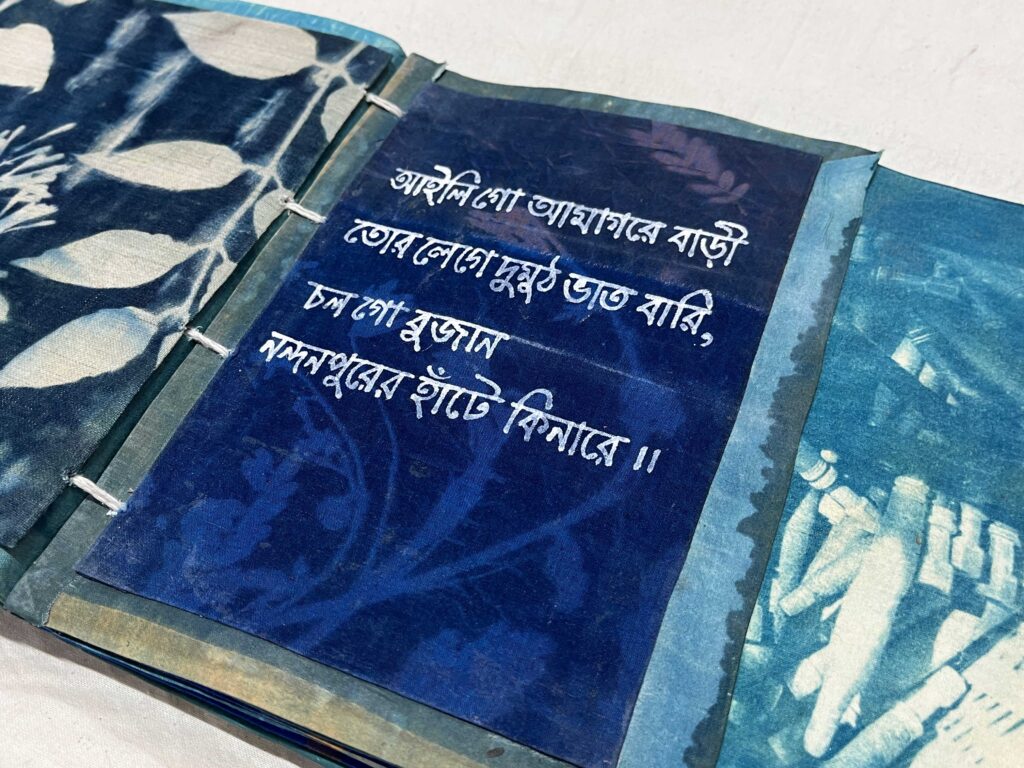 আইলি গো আমাগরে বাড়ী
তোর লেগে দুমুঠ ভাত বারি,
চল গো বুজান
নন্দনপুরের হাঁটে কিনারে ॥